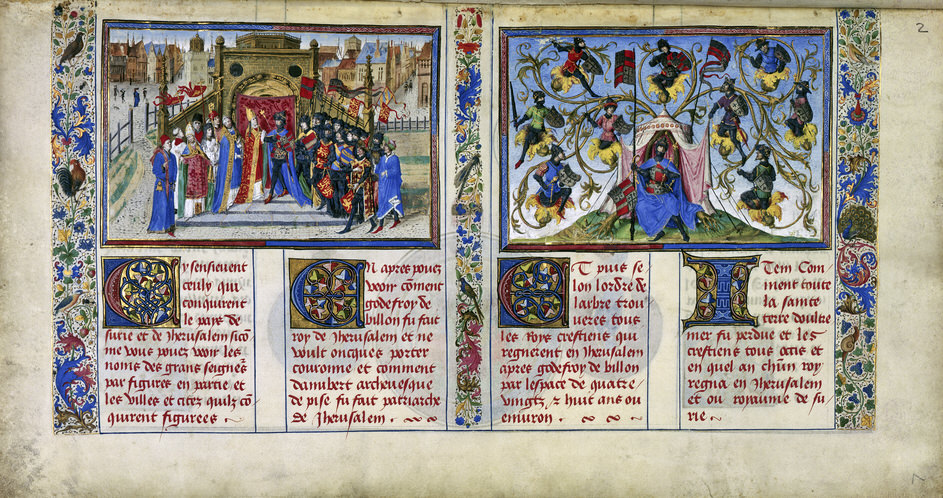 Cy senssieuent
ceulx qui
conquirent
le pays de
surie et de Jherusalem sico-
me vous pouez veoir les
noms des grans seigneurs
par figures en partie et
les villes et citez quilz co-
quirent figurees
En apres pouez
veoir coment
godefroy de
billon fu fait
roy de Jherusalem et ne
voult oncques porter
couronne et comment
danubert archeuesque
de pise fu fait patriarche
de Jherusalem .
Et puis se-
lon lordre de
larbre trou-
ueres tous
les Roys crestiens qui
regnerent en Jherusalem
apres godefroy de billon
par lespace de quatre
vingtz z huit ans ou
enuiron .
ITem Com-
ment toute
la sainte
terre doultre
mer fu perdue et les
crestiens tous actis et
en quel an chun roy
regna en Jherusalem
et ou royaume de su-
rie
2